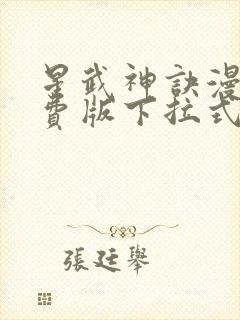 星武神訣漫
費版下拉式
張廷舉